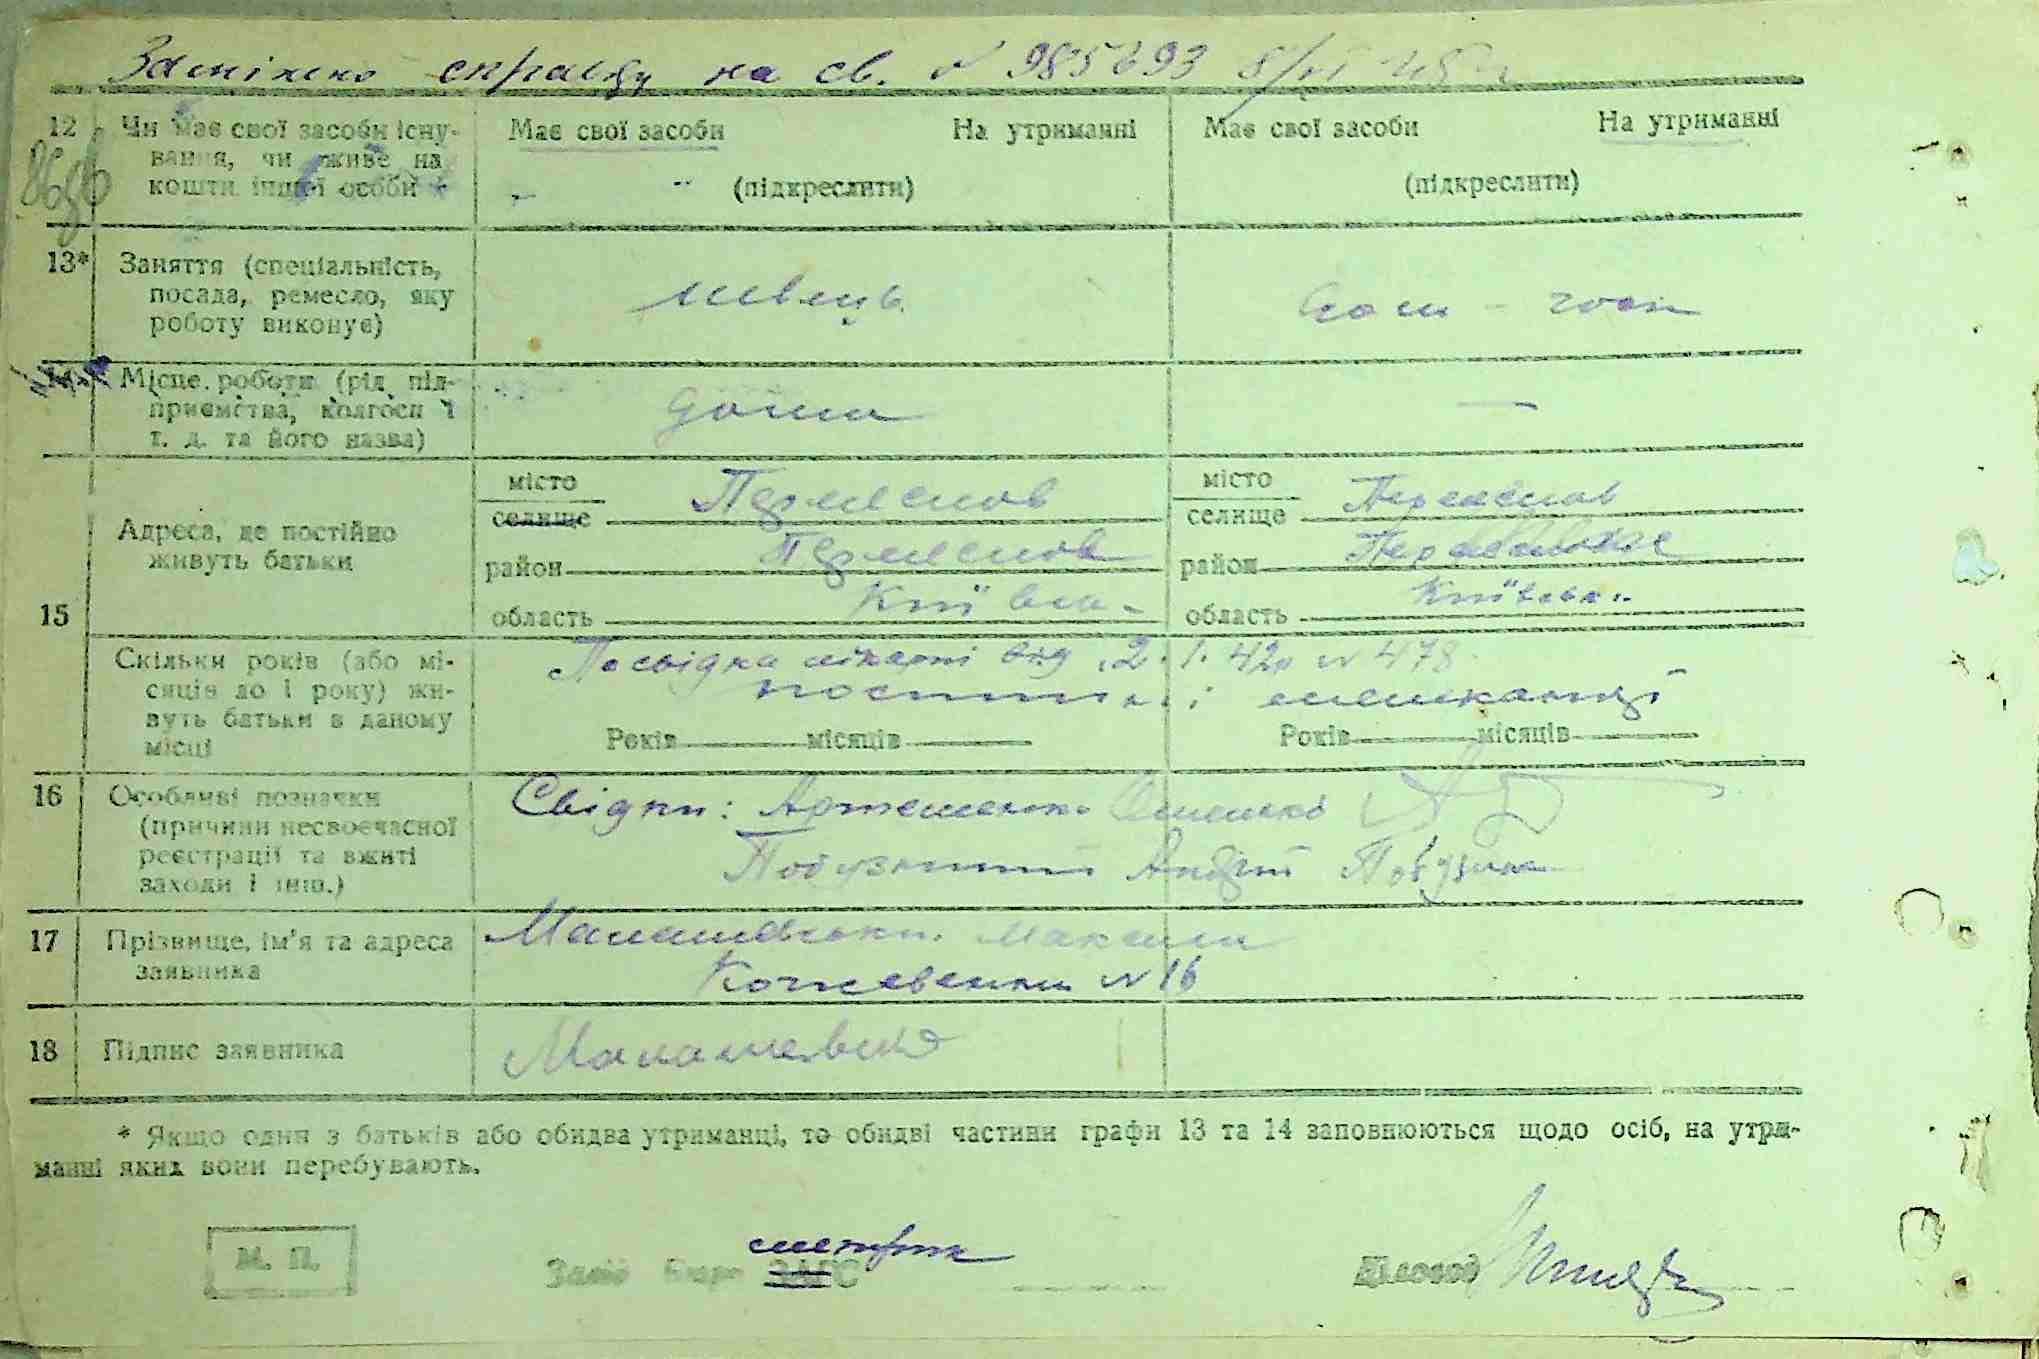 Замінено справку на св. № 985693 8/VI 48 р
12 Чи має свої засоби існу-
вання, чи живе на
кошти іншої особи
Має свої засоби На утриманні
(підкреслити)
Має свої засоби На утриманні
(підкреслити)
13* Заняття (спеціальність,
посада, ремесло, яку
роботу виконує)
швець
дом - госп
14* Місце роботи (рід під-
приємства, колгосп і
т. д. та його назва)
дома
—
15
Адреса, де постійно
живуть батьки
місто
селище Переяслов
район Переяслов
область Київськ.
місто
селище Переяслов
район
область Київськ.
Скільки років (або мі-
сяців до 1 року) жи-
вуть батьки в даному
місці
Посвідка лікарні від 2.1.42р № 478
постійні мешканці
Років місяців
Років місяців
16 Особливі позначки
(причини несвоєчасної
реєстрації та вжиті
заходи і інш.)
Свідки: Артеменко
Андрій
17 Прізвище, ім'я та адреса
заявника
Максим
№ 16
18 Підпис заявника
* Якщо один з батьків або обидва утриманці, то обидві частини графи 13 та 14 заповнюються щодо осіб, на утри-
манні яких вони перебувають.
М. П.
метрик
Зав. Бюро ЗАГС
Діловод